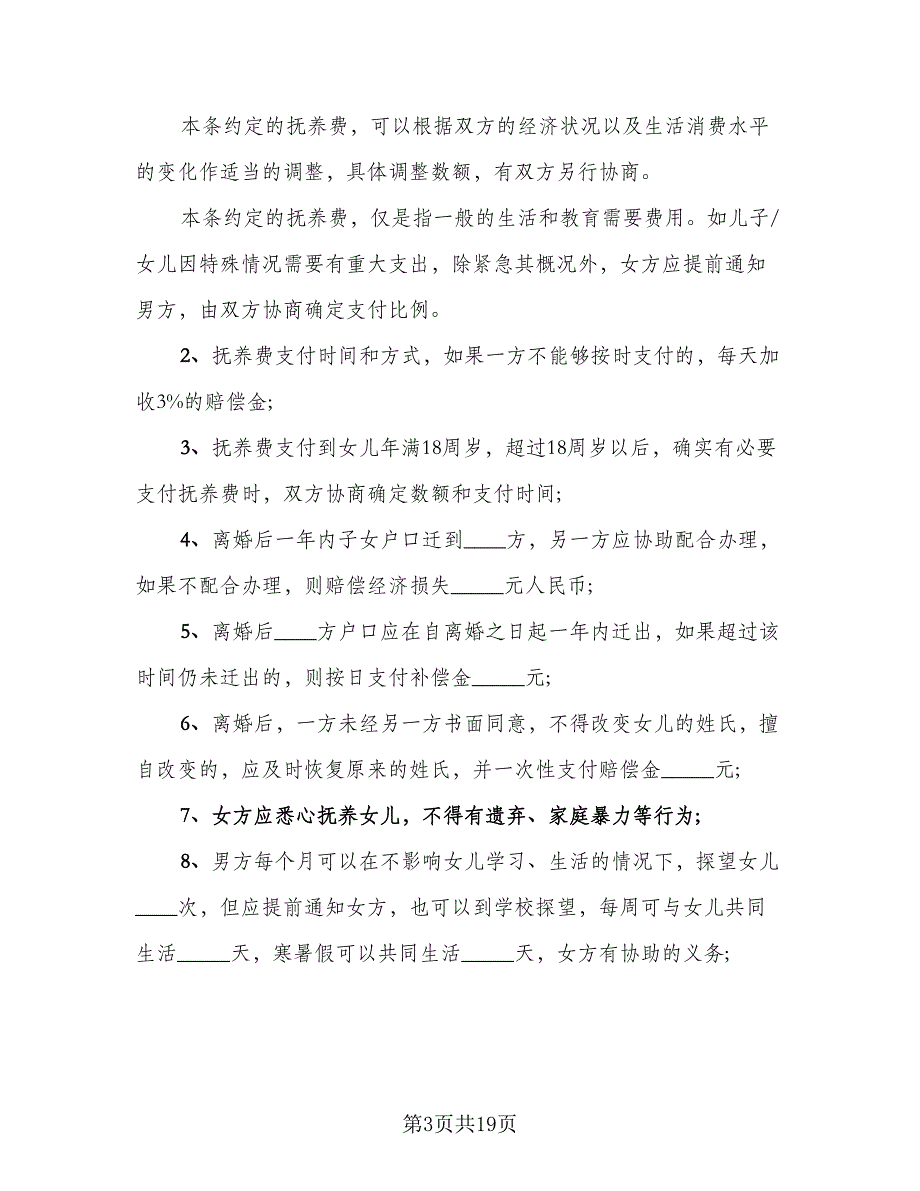 本条约定的抚养费，可以根据双方的经济状况以及生活消费水平
的变化作适当的调整，具体调整数额，有双方另行协商。
本条约定的抚养费，仅是指一般的生活和教育需要费用。如儿子/
女儿因特殊情况需要有重大支出，除紧急其概况外，女方应提前通知
男方，由双方协商确定支付比例。
2、抚养费支付时间和方式，如果一方不能够按时支付的，每天加
收3%的赔偿金;
3、抚养费支付到女儿年满18周岁，超过18周岁以后，确实有必要
支付抚养费时，双方协商确定数额和支付时间;
4、离婚后一年内子女户口迁到____方，另一方应协助配合办理，
如果不配合办理，则赔偿经济损失_____元人民币;
5、离婚后____方户口应在自离婚之日起一年内迁出，如果超过该
时间仍未迁出的，则按日支付补偿金_____元;
6、离婚后，一方未经另一方书面同意，不得改变女儿的姓氏，擅
自改变的，应及时恢复原来的姓氏，并一次性支付赔偿金_____元;
7、女方应悉心抚养女儿，不得有遗弃、家庭暴力等行为;
8、男方每个月可以在不影响女儿学习、生活的情况下，探望女儿
____次，但应提前通知女方，也可以到学校探望，每周可与女儿共同
生活_____天，寒暑假可以共同生活_____天，女方有协助的义务;
第3页共19页